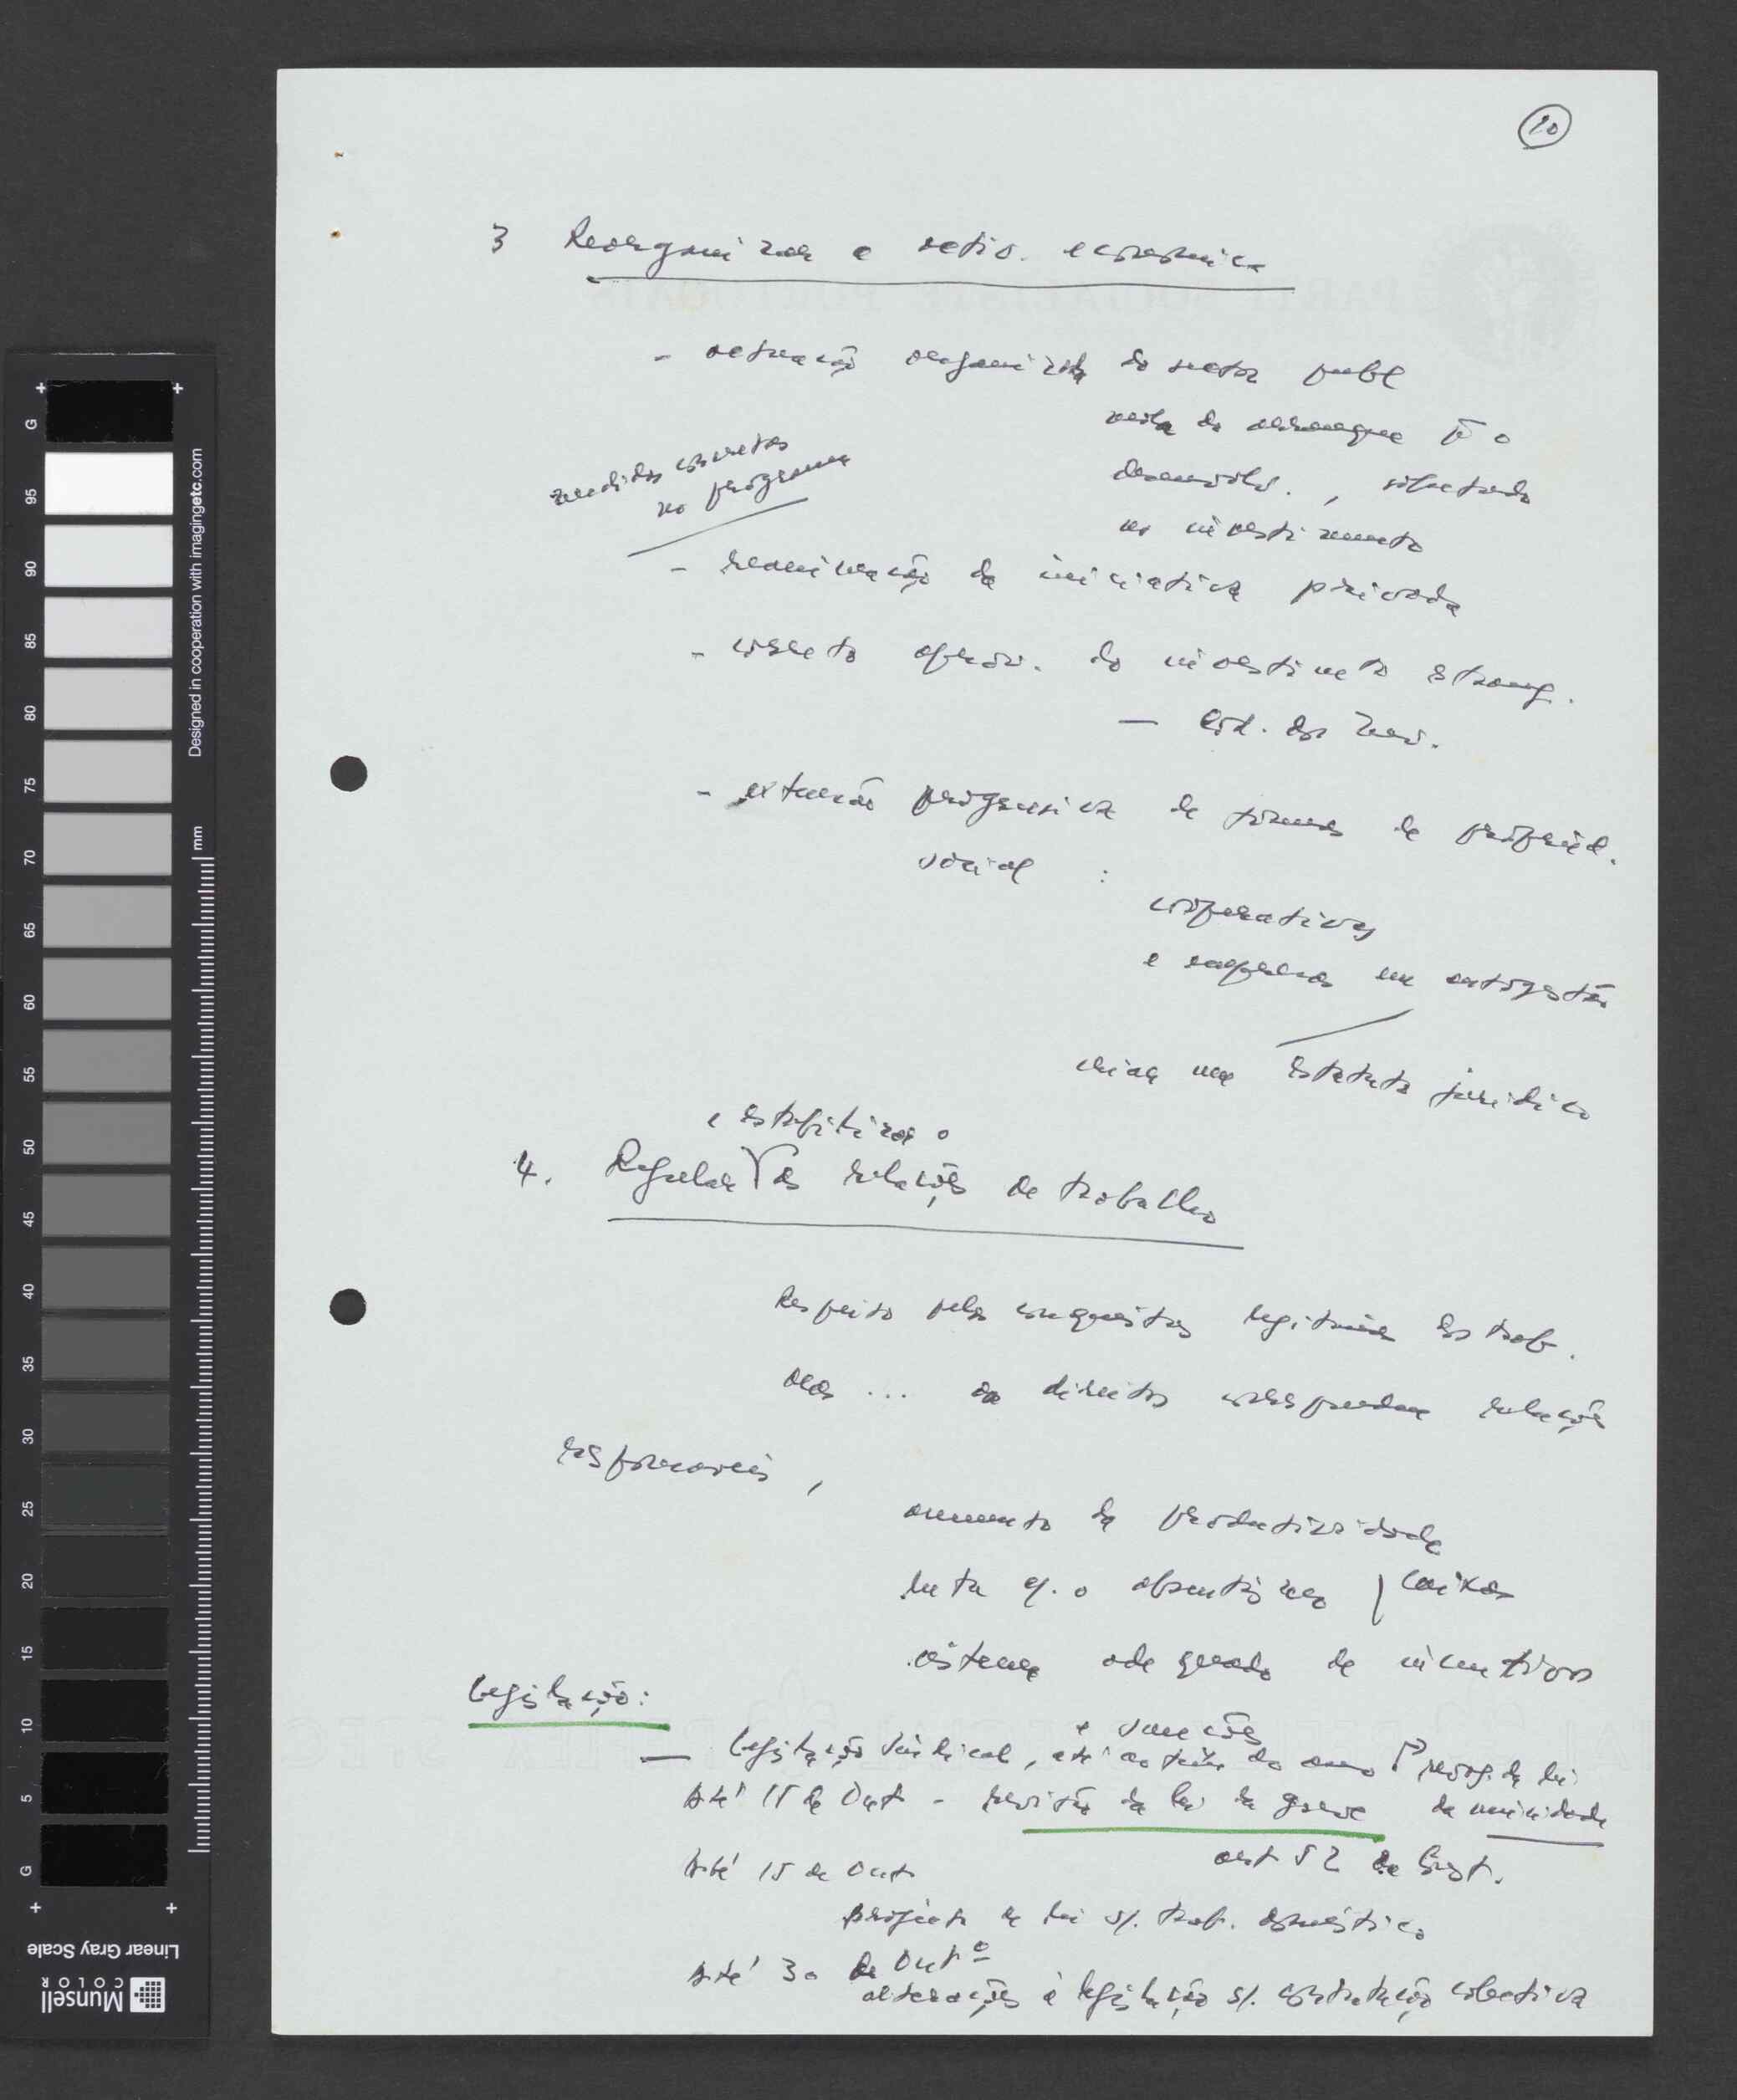 10
3 Reorganizar a activ. económica
- actuação reorganizada do sector publ
mola de arranque p.ª o
desenvolv. , sobretudo
no investimento
medidas concretas
no programa
- reanimação da iniciativa privada
- correcto aprov. do investimento estrang.
- Cód. dos Inv.
- extensão progressiva de formas de propried.
social :
cooperativas
e empresas em autogestão
criar um estatuto jurídico
e estabilizar o
4. Regular as relações de trabalho
Respeito pelas conquistas legítimas dos trab.
mas ... os direitos correspondem relações
responsáveis ,
aumento da productividade
luta c/. o absentismo / baixas
sistema adequado de incentivos
e sanções
Legislação:
- Legislação sindical, até ao fim do ano revog. da lei
da unicidade
Até 15 de Out - revisão da lei da greve
art 52 da Const.
Até 15 de Out
projecto de lei s/. trab. doméstico
Até 30 de Outº
alterações à legislação s/. contratação colectiva
PARTI SOCIALISTE PORTUGAIS
G 95 90 85 80 75 70 65 60 55 50 45 40 35 30 25 20 15 10 5 G
mm
Designed in cooperation with imagingetc.com
Linear Gray Scale
Munsell
COLOR